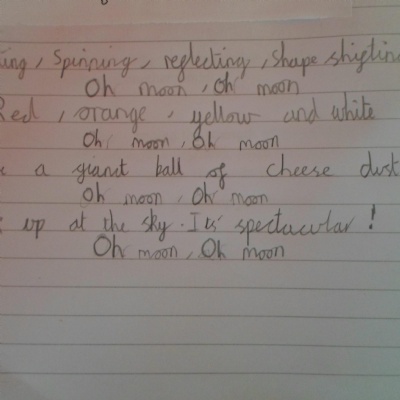 ting, Spinning, reglecting, shape shigting
Oh moon, Oh moon
Red, orange, yellow and white
Oh moon, Oh moon
a giant ball of cheese dust
Oh moon, Oh moon
up at the sky. It's spectacular!
Oh moon, Oh moon